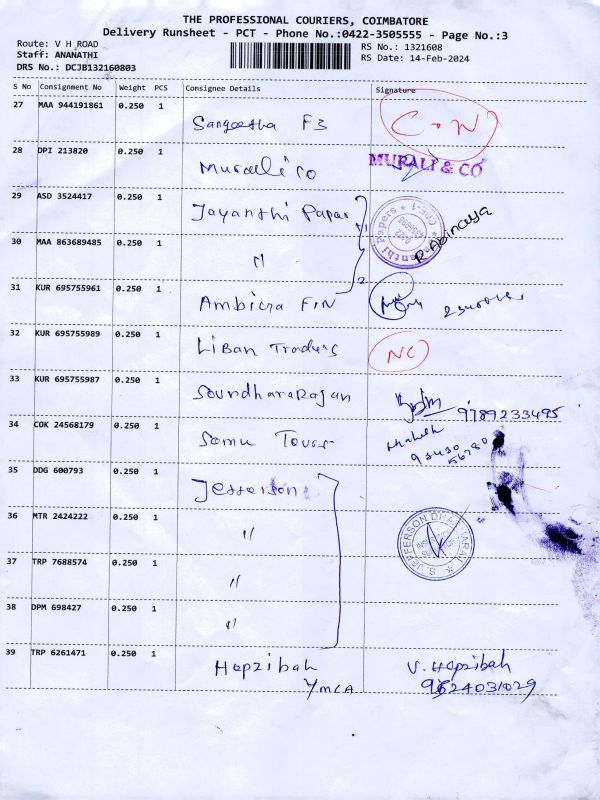 THE PROFESSIONAL COURIERS, COIMBATORE
Delivery Runsheet - PCT - Phone No.:0422-3505555 - Page No.:3
Route: V H ROAD
Staff: ANANATHI
DRS No.: DCJB132160803
RS No.: 1321608
RS Date: 14-Feb-2024
S No Consignment No Weight PCS Consignee Details Signature
27 MAA 944191861 0.250 1 Sangeetha F3
28 DPI 213820 0.250 1 Murali co MURALI & CO
29 ASD 3524417 0.250 1 Jayanthi Papar R. Abinaya
30 MAA 863689485 0.250 1 "
31 KUR 695755961 0.250 1 Ambica FIN
32 KUR 695755989 0.250 1 Liban Traders NC
33 KUR 695755987 0.250 1 Soundhararajan 9789233495
34 COK 24568179 0.250 1 Somu Tours
35 DDG 600793 0.250 1 Jefferson
36 MTR 2424222 0.250 1 "
37 TRP 7688574 0.250 1 "
38 DPM 698427 0.250 1 "
39 TRP 6261471 0.250 1 Hepzibah V. Hepzibah
YMCA